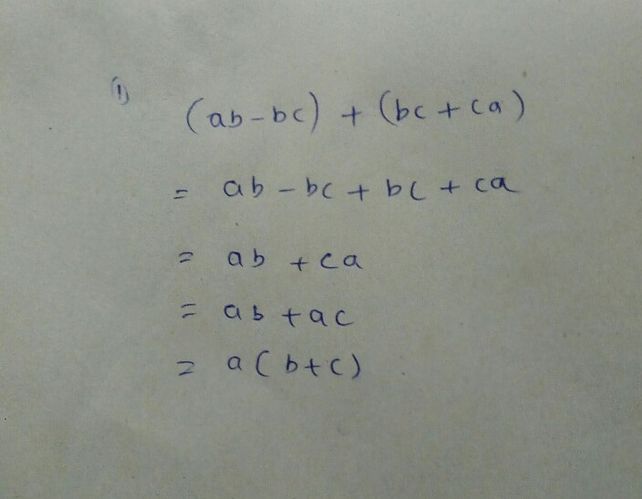 ① (ab-bc) + (bc + ca)
= ab - bc + bc + ca
= ab + ca
= ab + ac
= a(b+c)